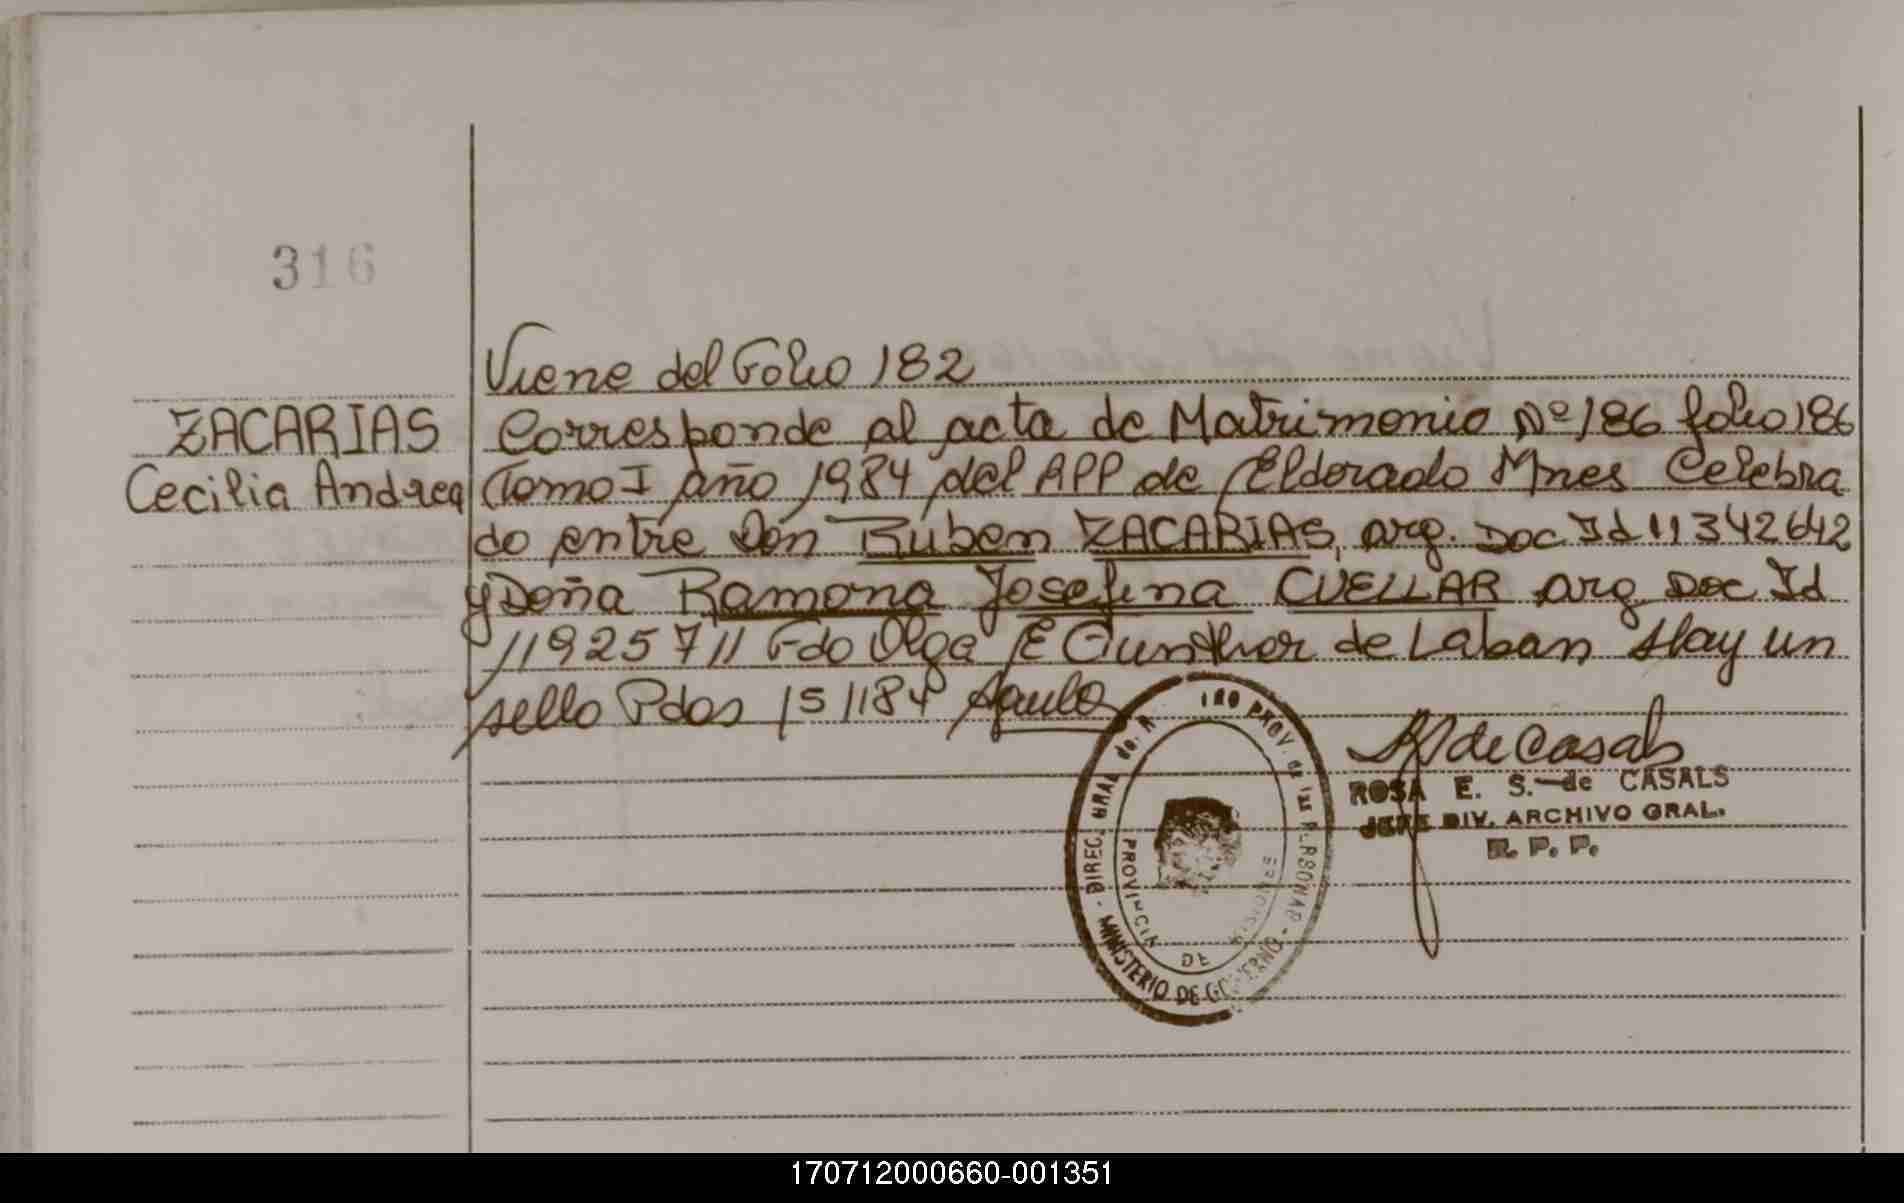 316
Viene del Folio 182
ZACARIAS
Cecilia Andrea
Corresponde al acta de Matrimonio Nº 186 folio 186
Tomo I año 1984 del APP de Eldorado Mnes Celebra
do entre Don Ruben ZACARIAS, arg. Doc Id 11342642
y Doña Ramona Josefina CUELLAR arg Doc Id
11925711 Fdo Olga E Gunther de Laban Hay un
sello Pdos 151184
de Casals
ROSA E. S. de CASALS
JEFE DIV. ARCHIVO GRAL.
R. P. P.
DIREC. GRAL de PROV. de las PERSONAS - MINISTERIO DE GOBIERNO -
PROVINCIA DE MISIONES
170712000660-001351